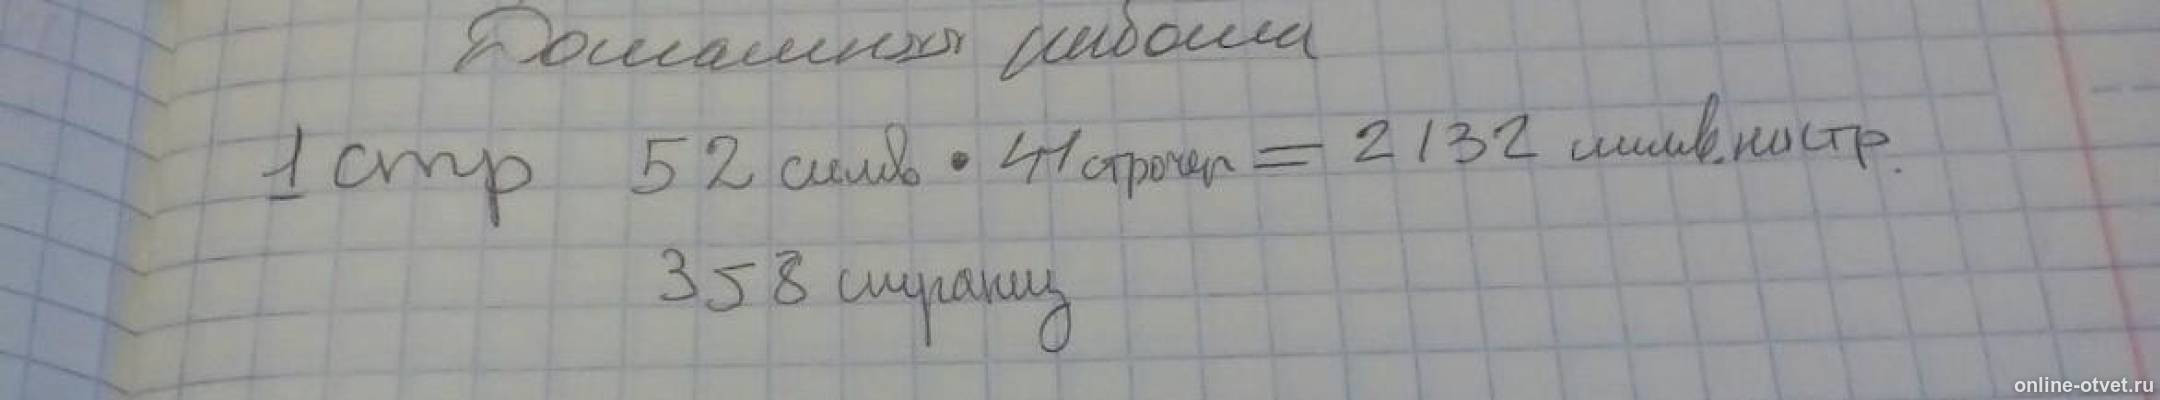 Домашняя работа
1 стр 52 симв • 41 строчек = 2132 симв. на стр.
358 страниц
online-otvet.ru